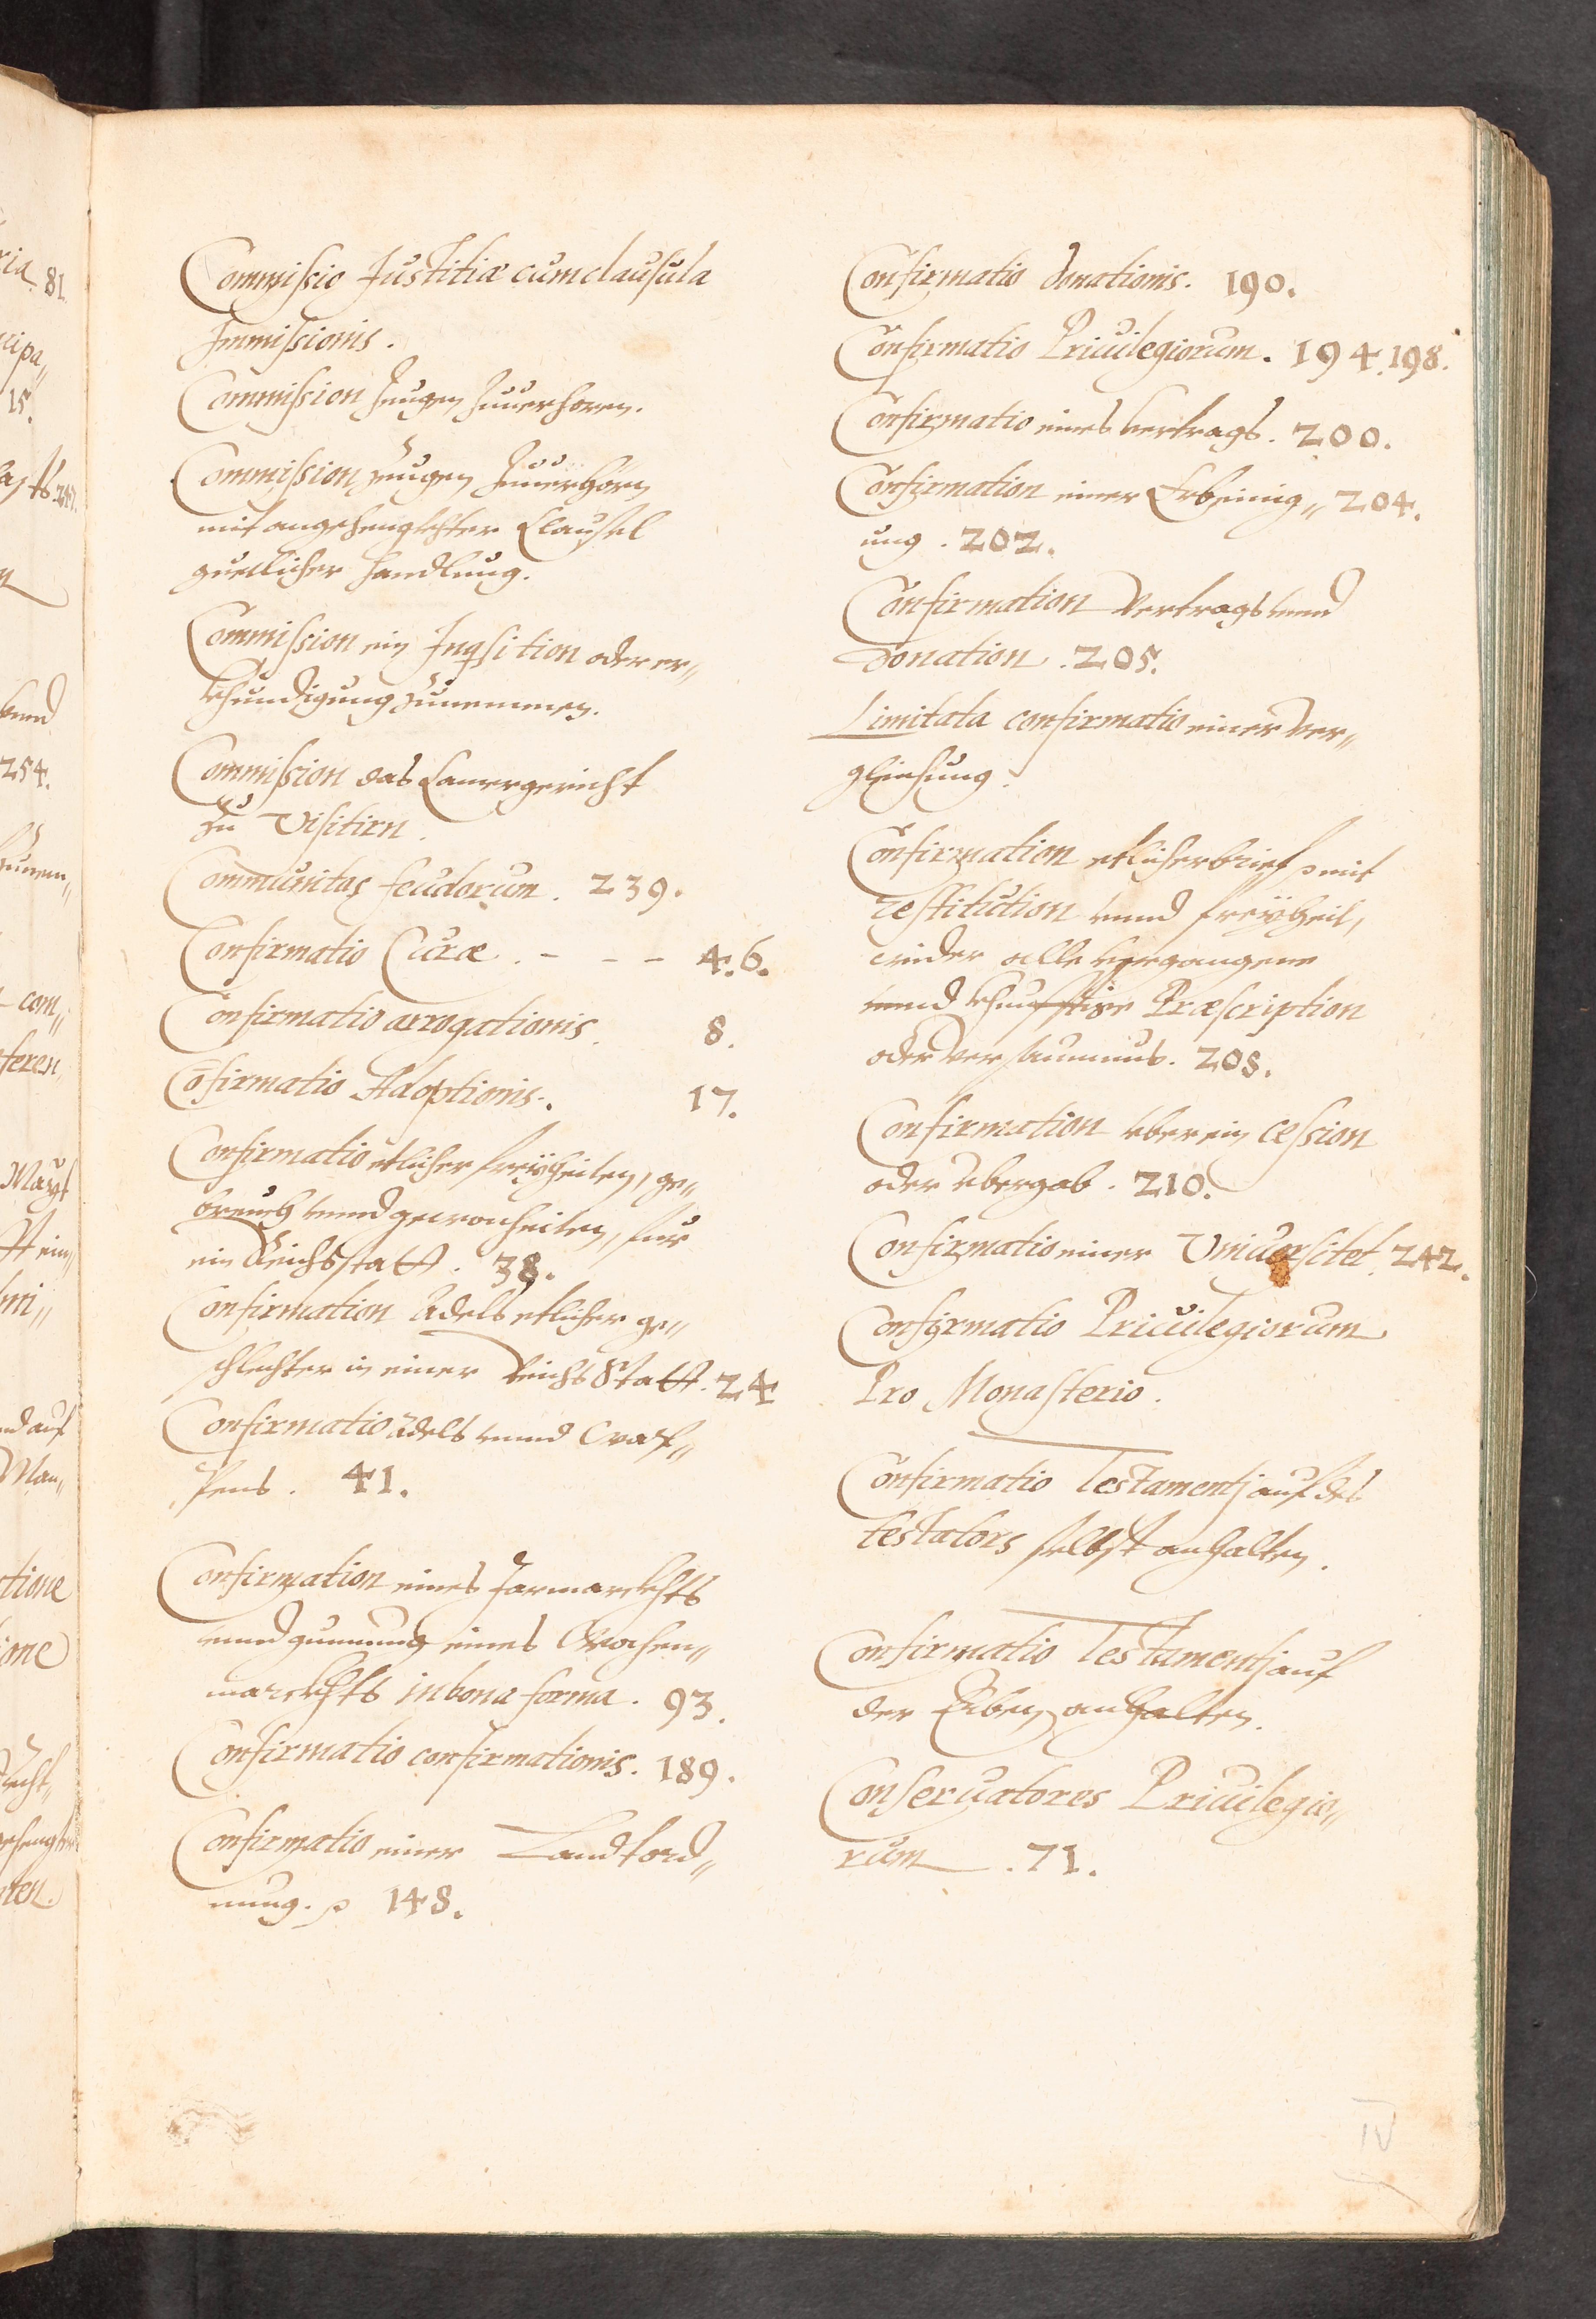 Commissio Justitiæ cum clausula
Immissionis.
Commission Zeugen Zuuerhoren.
Commission zeugen Zuuerhörn
mit angehengkhter Clausel
guetlicher handlung.
Commission ein Inqsition oder er„
khundigung zunemmen.
Commission das Camergericht
zu Visitirn.
Communitas feudorum. 239.
Confirmatio Curæ. - - - 4. 6.
Confirmatio arrogationis. 8.
Cōfirmatio Adoptionis. 17.
Confirmatio etlicher freÿheiten, ge„
breuch vnnd gewonheiten, für
ein Reichsstatt. 38.
Confirmation Adels etlicher ge„
schlechter in einer Reichs Statt. 24
Confirmatio Adels vnnd Wap„
pens. 41.
Confirmation eines Jarmarckhts
vnnd gunnung eines Wochen„
marckhts in bona forma. 93.
Confirmatio confirmationis. 189.
Confirmatio einer Landtord„
nung. 148.
Confirmatio donationis. 190.
Confirmatio Priuilegiorum. 194. 198.
Confirmatio eines vertrags. 200.
Confirmation einer Erbeinig„ 204.
ung. 202.
Confirmation Vertrags vnnd
Donation. 205.
Limitata confirmatio einer ver„
gleichung.
Confirmation etlicher brief mit
restitution vnnd freÿheit,
wider alle vergangene
vnnd khunfftige Præscription
oder versaumnus. 208.
Confirmation vber ein Cession
oder vbergab. 210.
Confirmatio einer Vniuersitet. 242.
Confyrmatio Priuilegiorum
Pro Monasterio.
Confirmatio Testamentj auf des
testators selbst anhalten.
Confirmatio Testamentj auf
der Erben anhalten.
Conseruatores Priuilegio„
rum. 71.
IV